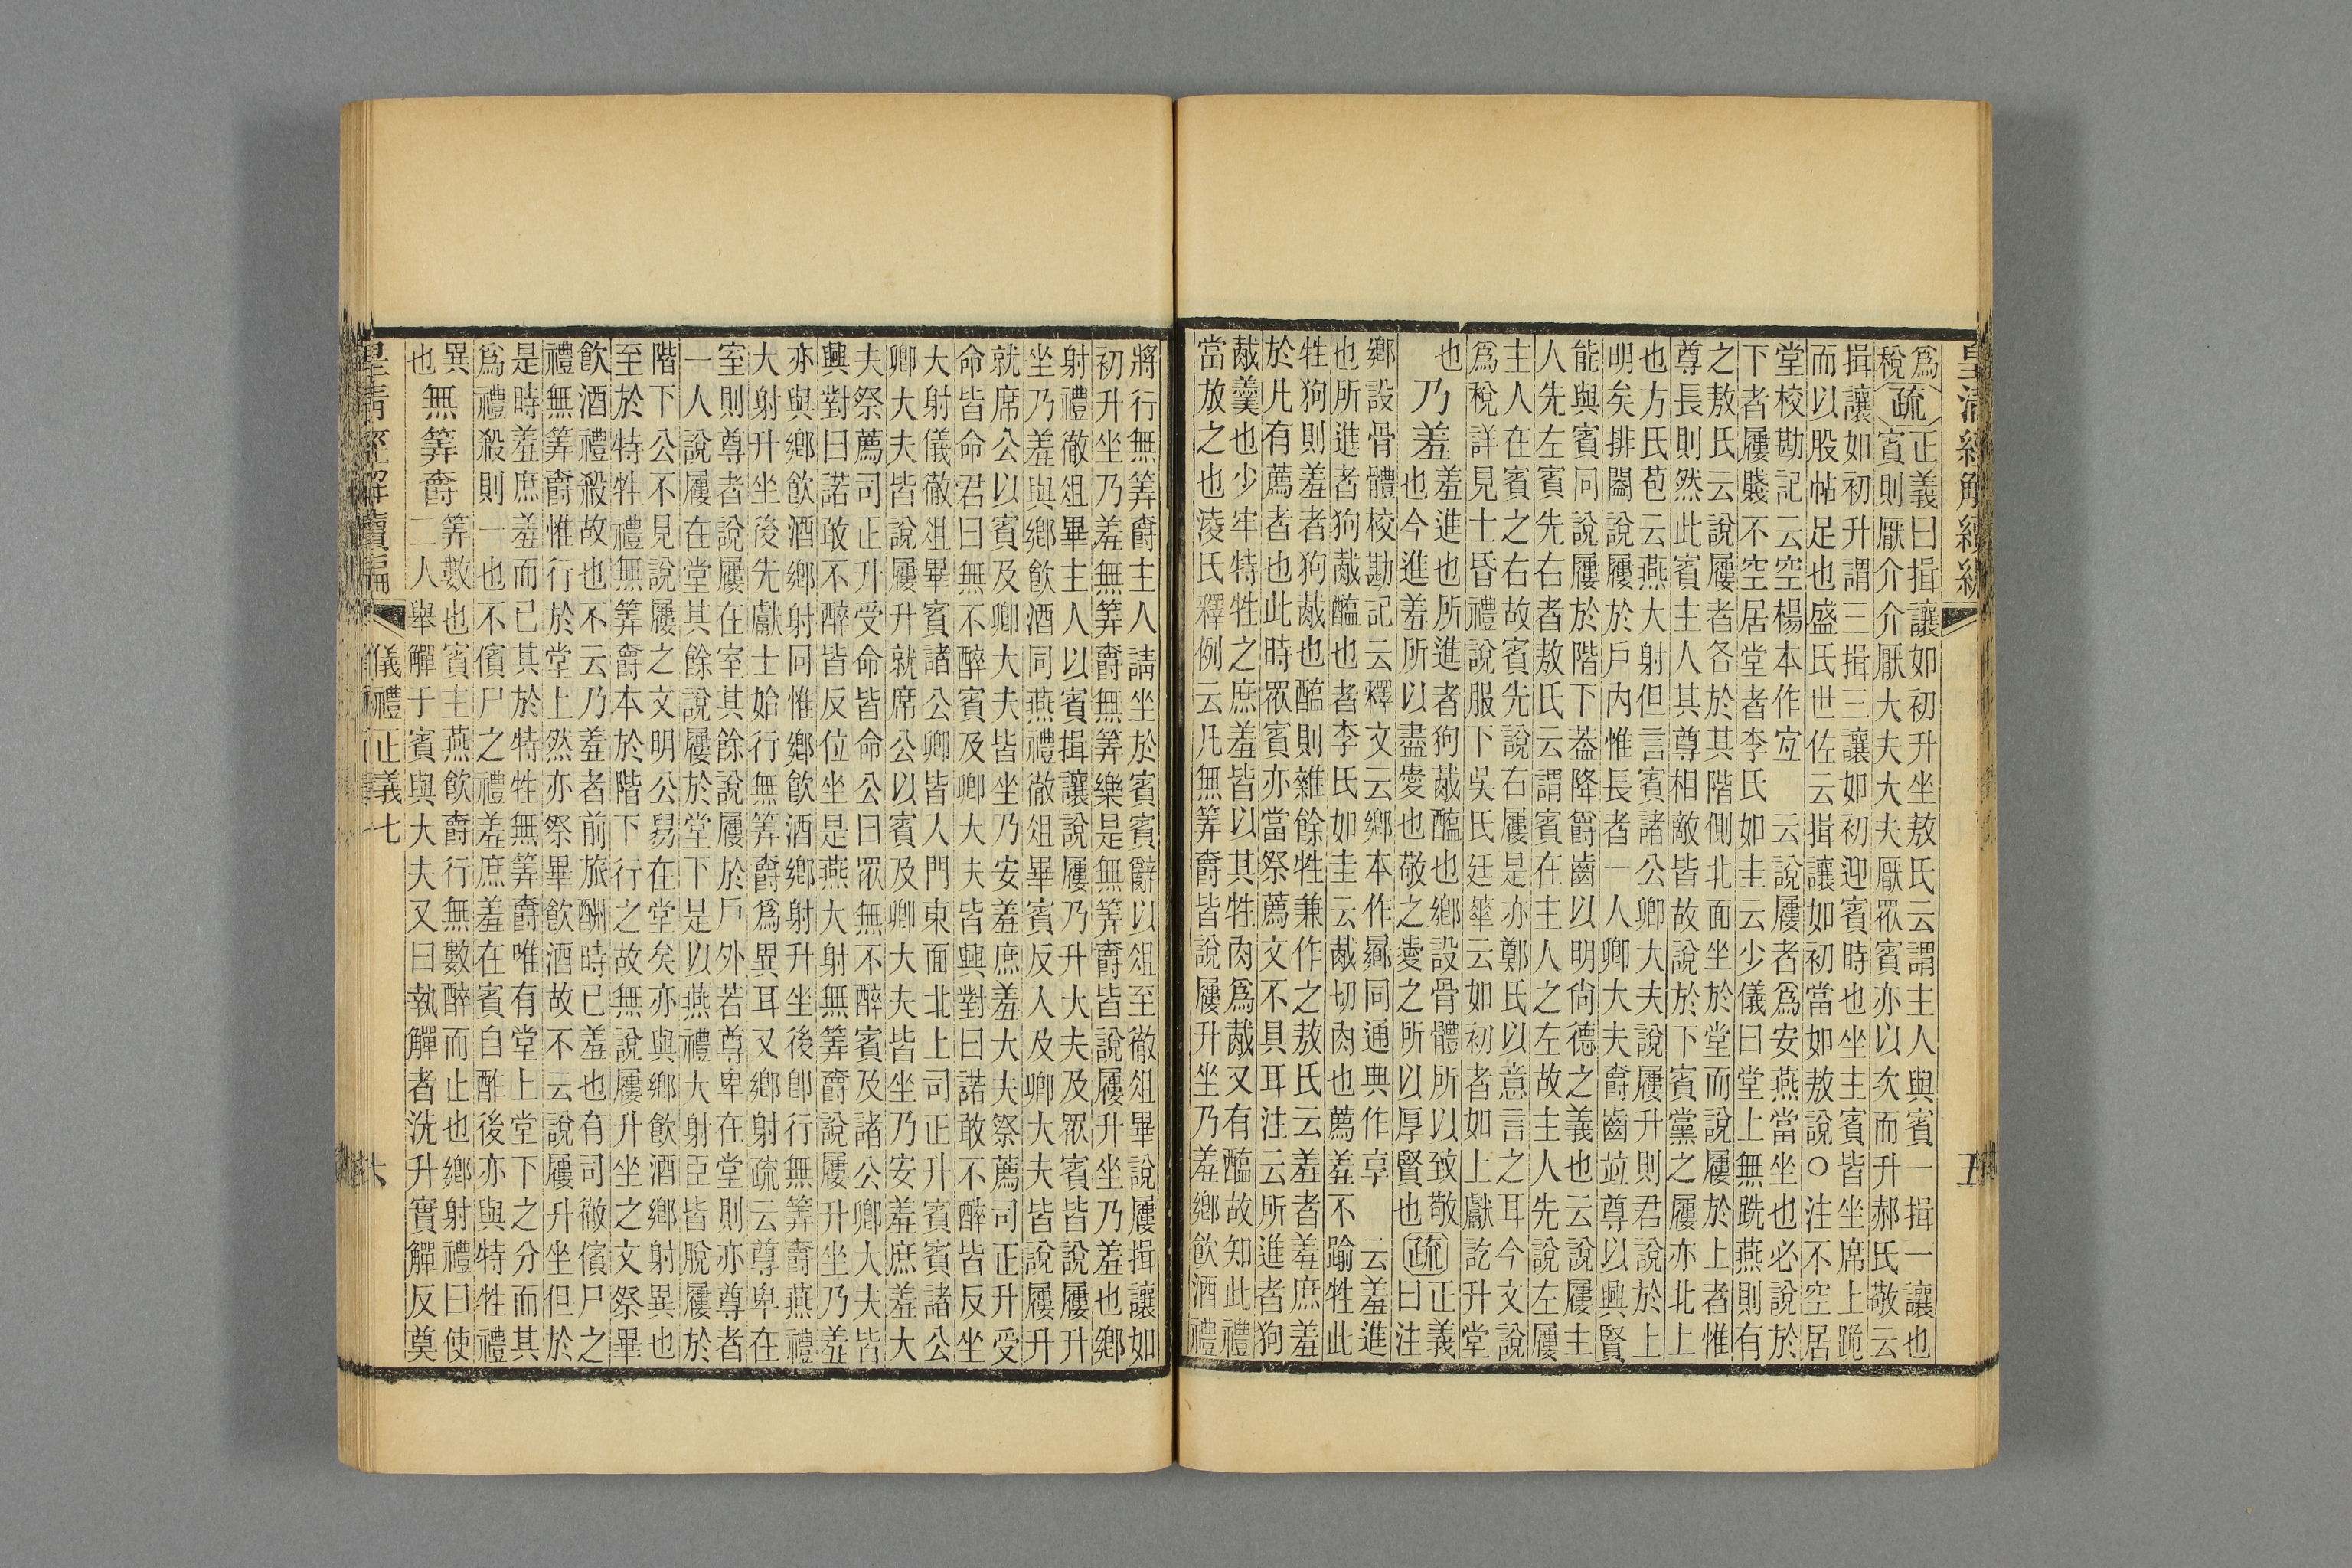 皇清經解續編
五
爲
稅疏
正義曰揖讓如初升坐敖氏云謂主人與賓一揖一讓也
賓則厭介介厭大夫大夫厭眾賓亦以次而升郝氏敬云
揖讓如初升謂三揖三讓如初迎賓時也坐主賓皆坐席上跪
而以股帖足也盛氏世佐云揖讓如初當如敖說○注不空居
堂校勘記云空楊本作㝉 云說屨者爲安燕當坐也必說於
下者屨賤不空居堂者李氏如圭云少儀曰堂上無跣燕則有
之敖氏云說屨者各於其階側北面坐於堂而說屨於上者惟
尊長則然此賓主人其尊相敵皆故說於下賓黨之屨亦北上
也方氏苞云燕大射但言賓諸公卿大夫說屨升則君說於上
明矣排闔說屨於戶內惟長者一人卿大夫爵齒竝尊以興賢
能與賓同說屨於階下葢降爵齒以明尙德之義也云說屨主
人先左賓先右者敖氏云謂賓在主人之左故主人先說左屨
主人在賓之右故賓先說右屨是亦鄭氏以意言之耳今文說
爲稅詳見士昏禮說服下吳氏廷華云如初者如上獻訖升堂
也
乃羞
羞進也所進者狗胾醢也鄉設骨體所以致敬
也今進羞所以盡愛也敬之愛之所以厚賢也
疏
正義
曰注
鄉設骨體校勘記云釋文云鄉本作曏同通典作享 云羞進
也所進者狗胾醢也者李氏如圭云胾切肉也薦羞不踰牲此
牲狗則羞者狗胾也醢則雜餘牲兼作之敖氏云羞者羞庶羞
於凡有薦者也此時眾賓亦當祭薦文不具耳注云所進者狗
胾羹也少牢特牲之庶羞皆以其牲肉爲胾又有醢故知此禮
當放之也淩氏釋例云凡無筭爵皆說屨升坐乃羞鄉飲酒禮
將行無筭爵主人請坐於賓賓辭以俎至徹俎畢說屨揖讓如
初升坐乃羞無筭爵無筭樂是無筭爵皆說屨升坐乃羞也鄉
射禮徹俎畢主人以賓揖讓說屨乃升大夫及眾賓皆說屨升
坐乃羞與鄉飲酒同燕禮徹俎畢賓反入及卿大夫皆說屨升
就席公以賓及卿大夫皆坐乃安羞庶羞大夫祭薦司正升受
命皆命君曰無不醉賓及卿大夫皆興對曰諾敢不醉皆反坐
大射儀徹俎畢賓諸公卿皆入門東面北上司正升賓賓諸公
卿大夫皆說屨升就席公以賓及卿大夫皆坐乃安羞庶羞大
夫祭薦司正升受命皆命公曰眾無不醉賓及諸公卿大夫皆
興對曰諾敢不醉皆反位坐是燕大射無筭爵說屨升坐乃羞
亦與鄉飲酒鄉射同惟鄉飲酒鄉射升坐後卽行無筭爵燕禮
大射升坐後先獻士始行無筭爵爲異耳又鄉射疏云尊卑在
室則尊者說屨在室其餘說屨於戶外若尊卑在堂則亦尊者
一人說屨在堂其餘說屨於堂下是以燕禮大射臣皆脫屨於
階下公不見說屨之文明公舄在堂矣亦與鄉飲酒鄉射異也
至於特牲禮無筭爵本於階下行之故無說屨升坐之文祭畢
飲酒禮殺故也不云乃羞者前旅酬時已羞也有司徹儐尸之
禮無筭爵惟行於堂上然亦祭畢飲酒故不云說屨升坐但於
是時羞庶羞而已其於特牲無筭爵唯有堂上堂下之分而其
爲禮殺則一也不儐尸之禮羞庶羞在賓自酢後亦與特牲禮
異
也
無筭爵
筭數也賓主燕飲爵行無數醉而止也鄉射禮曰使
二人舉觶于賓與大夫又曰執觶者洗升實觶反奠
皇清經解續編
儀禮正義七
六